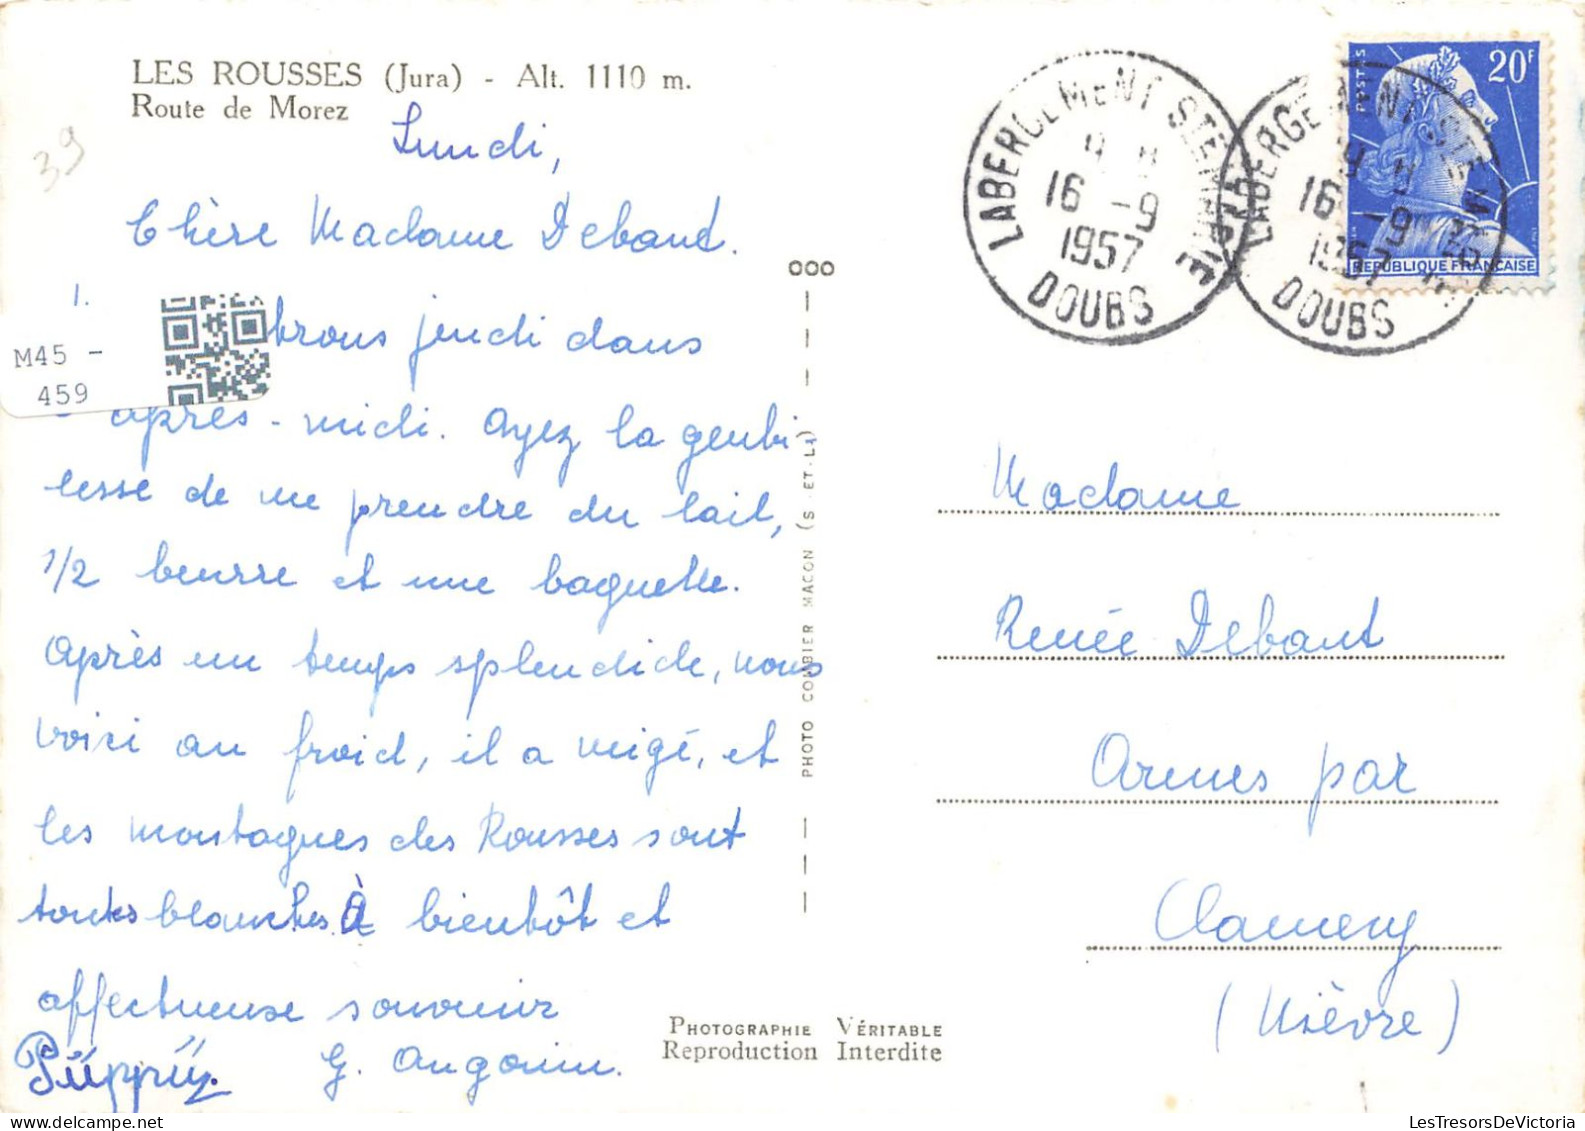 LES ROUSSES (Jura) - Alt. 1110 m.
Route de Morez
39
Lundi,
Chère Madame Debaut.
brons jeudi dans
après-midi. Ayez la genti
lesse de me prendre du lait,
1/2 beurre et une baguette.
Après un temps splendide, nous
voici au froid, il a neigé, et
les montagnes des Rousses sont
toutes blanches. À bientôt et
affectueuse souvenir
G. Angonin.
M45 -
459
PHOTO COMBIER MACON (S. ET-L.)
PHOTOGRAPHIE VÉRITABLE
Reproduction Interdite
LABERGEMENT STE MARIE
16 -9
1957
DOUBS
LABERGEMENT STE MARIE
16 -9
1957
DOUBS
POSTES
20F
REPUBLIQUE FRANCAISE
Madame
Renée Debaut
Armes par
Clamecy
(Nièvre)
LesTresorsDeVictoria